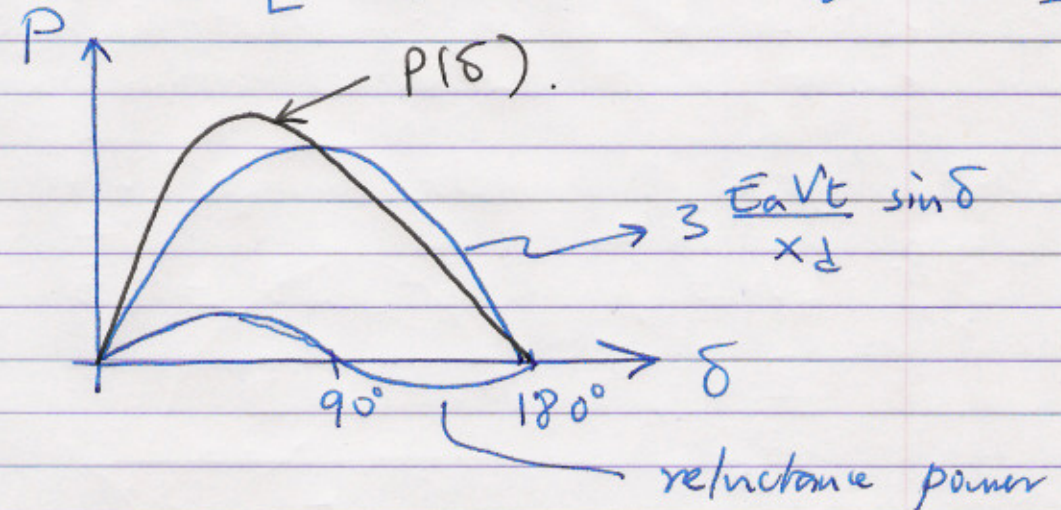 P
P(δ).
3 EaVt/xd sinδ
δ
90° 180°
reluctance power